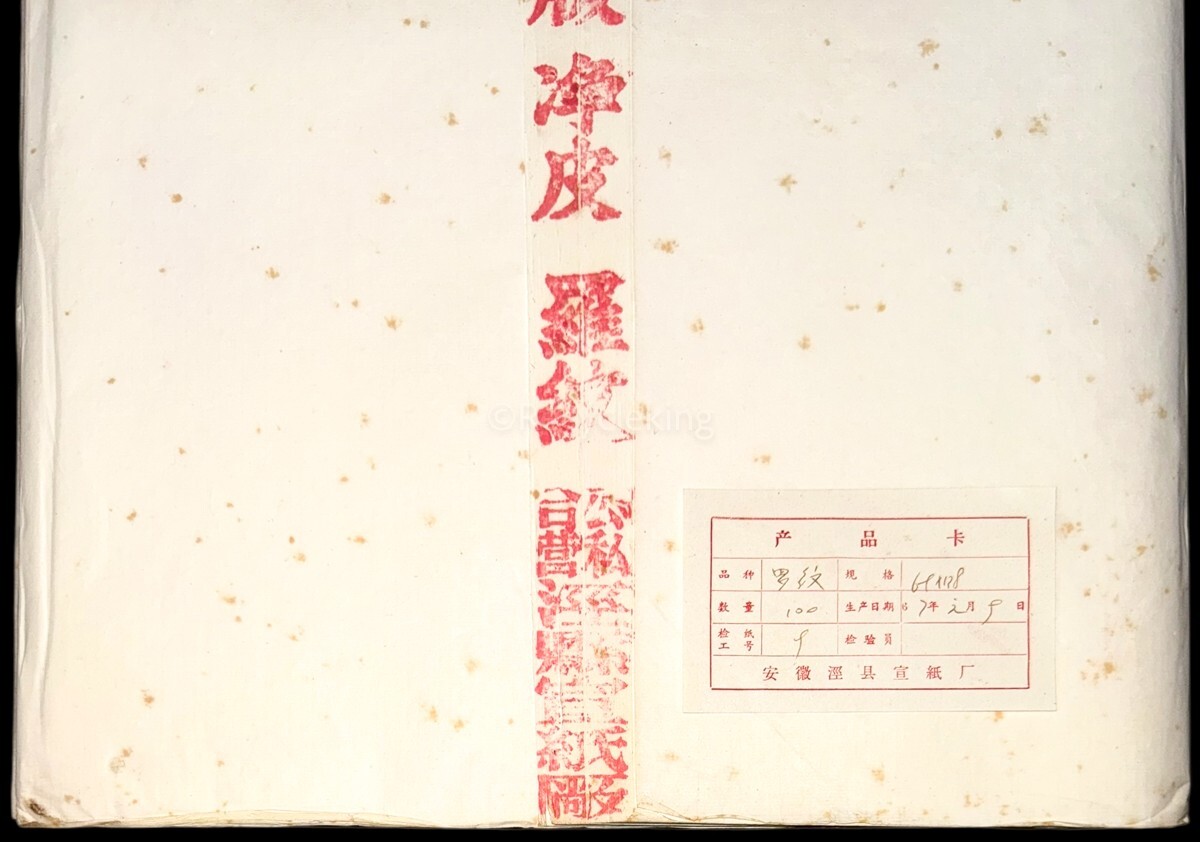 净皮
羅紋
公私
合營
涇縣宣紙廠
产品卡
品种 罗纹 规格
数量 100 生产日期 67年元月9日
检纸 9 检验员
工号
安徽涇县宣紙厂